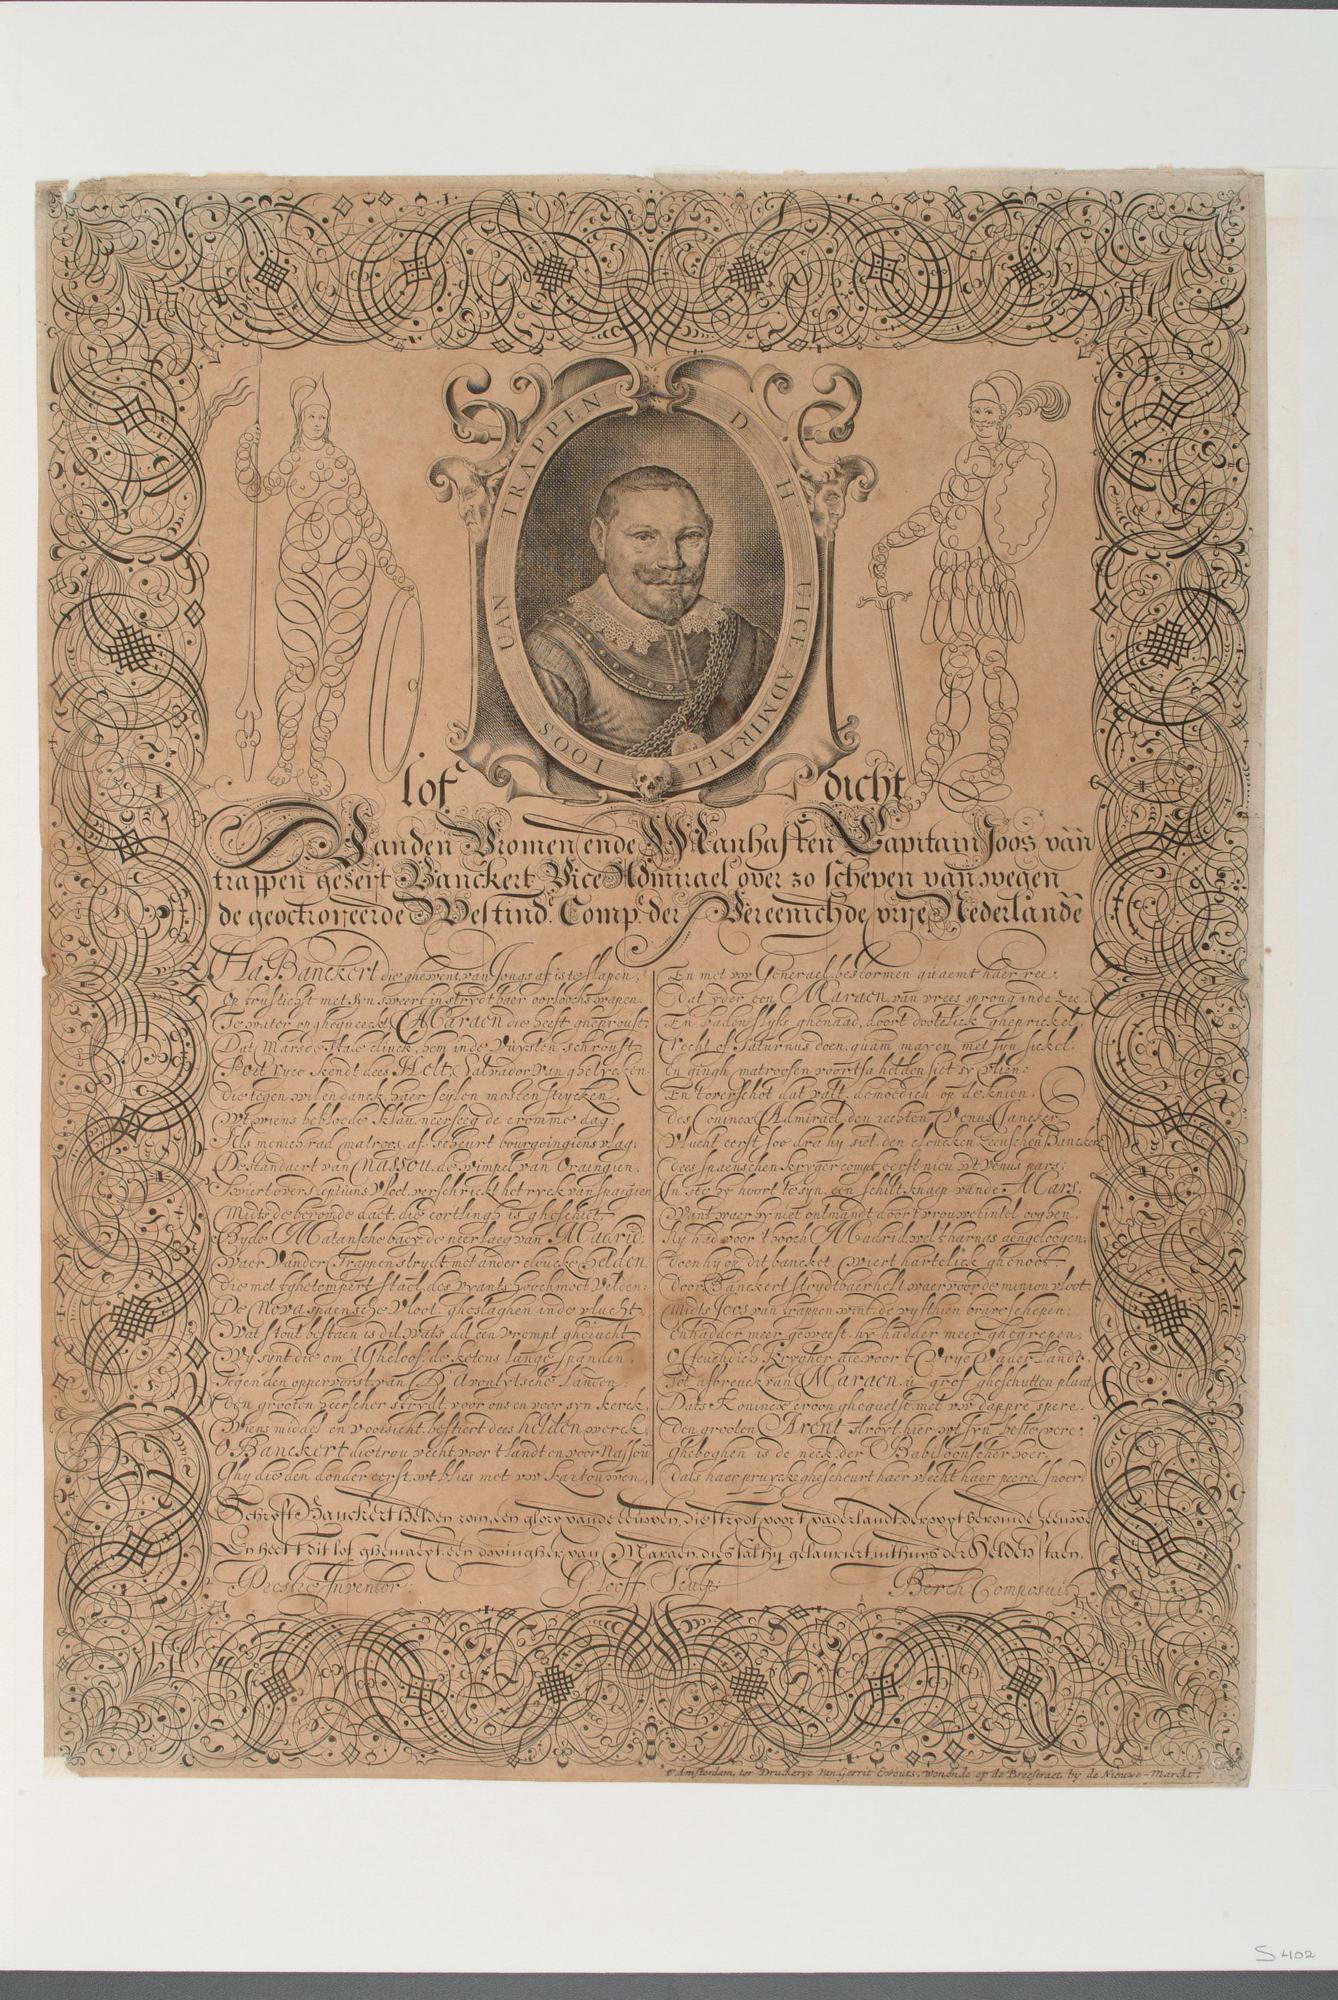 D H UICE ADMIRAEL IOOS UAN TRAPPEN
lof dicht
Vanden Vromen ende Manhaften Capitain Joos van
trappen geseyt Banckert Vice Admirael over 30 schepen van wegen
de geoctroyeerde Westind. Comp. der Vereenichde vrije Nederlandē
Ha Banckert die ghewent van Jongs af is te slapen,
Op krijslicht met syn sweert in strydt baer oorloochs wapen.
Te water op ghequeeckt Maraen die heeft gheproust:
Dat Mars de stale clinck, hem inde vuysten schroust
Poet ryco kendt dees Helt, Salvador van ghelycken
die tegen wil en danck haer seylen mosten strycken.
Wt wiens beblode klau, neerseeg de cromme dag:
Als menich rad matroos, af scheurt bourgoingiens vlag.
De standaert van Nassou, de wimpel van Oraingien.
Swiert over Neptuins vloet, verschrickt het ryck van spaigien
Midts de beromde daet, die cortlingh is gheschiet.
Byde Matansche bay, de neerlaeg van Madrid:
Waer Vander Trappen strydt, met ander cloucke helden
die met tghetempert stael, des vyants hoochmoet velden:
De Nova spaensche vloot. gheslaghen inde vlucht.
Wat stout bestaen is dit, wats dit een vrempt gherucht
Wy synt die om 't Gheloof, de ketens lange spanden,
Tegen den oppervorst van D'Avontytsche Landen:
Den grooten heerscher strydt, voor ons en voor syn kerck,
Wiens middel en voorsicht, bestiert dees helden werck,
O Banckert die trou vecht, voor t' landt en voor Nassou
Ghy die den donder eerst, wt blies met vw kartouwen,
En met vw Generael, bestormen quaemt haer ree,
dat yder een Maraen, van vrees sprong inde zee.
En badon slyfs ghenaad, doort dootelick gheprickel,
recht of Saturnus doen, quam mayen met syn sickel.
En gingh matroosen voort, sa helden siet sy vlien:
En t'overschot dat valt. demoedich op de knien.
des Conincx Admirael, den rechten Venus Jancker,
Vlucht eerst soo dra hy siet, den cloucken zeeuschen Bancker
dees spaenschen kryger compt eerst nieu wt Venus pars:
En ste hy hoort te syn, een schilt knaep vande Mars,
Want waer hy niet ontmandt door t vrouwe tintel ooghen,
hy had voor 't hooch Madrid, wel t'harnas aengetoogen:
doen hy op dit bancket wiert hartelick ghenoot
door Banckert strydtbaer helt, waer voor de minion vloot
Midts Joos van trappen wint, de vyfthien brave schepen:
En hadder meer geweest, hy hadder meer ghegrepen,
O Jeuchdich kryger die voor 't Vrye Vader Landt,
tot afbreuck van Maraen, u grof gheschutten plant,
Dats Konincx croon ghequetst, met vw dappre spere.
Den grooten Arent stroyt, hier wt syn beste vere:
Gheboghen is de neck der Babiloonscher hoer,
dats haer pruycke ghescheurt haer vlecht haer peerel snoer.
Schryft Banckert helden zoin, een glory vande eeuwen, die strydt voort vaderlandt, der wyt beromde Zeeuwē
En heet 't dit lof ghemaeyt, een dwingher van Maraen, dies sal hy gelauriert, int huys der Helden staen.
Prestre Inventor: G: looff. Sculp: Berch Composuit
t' Amsterdam, ter Druckerye van Gerrit Ewouts, wonende op de Breestraet, by de Nieuwe-Marckt.
S 402